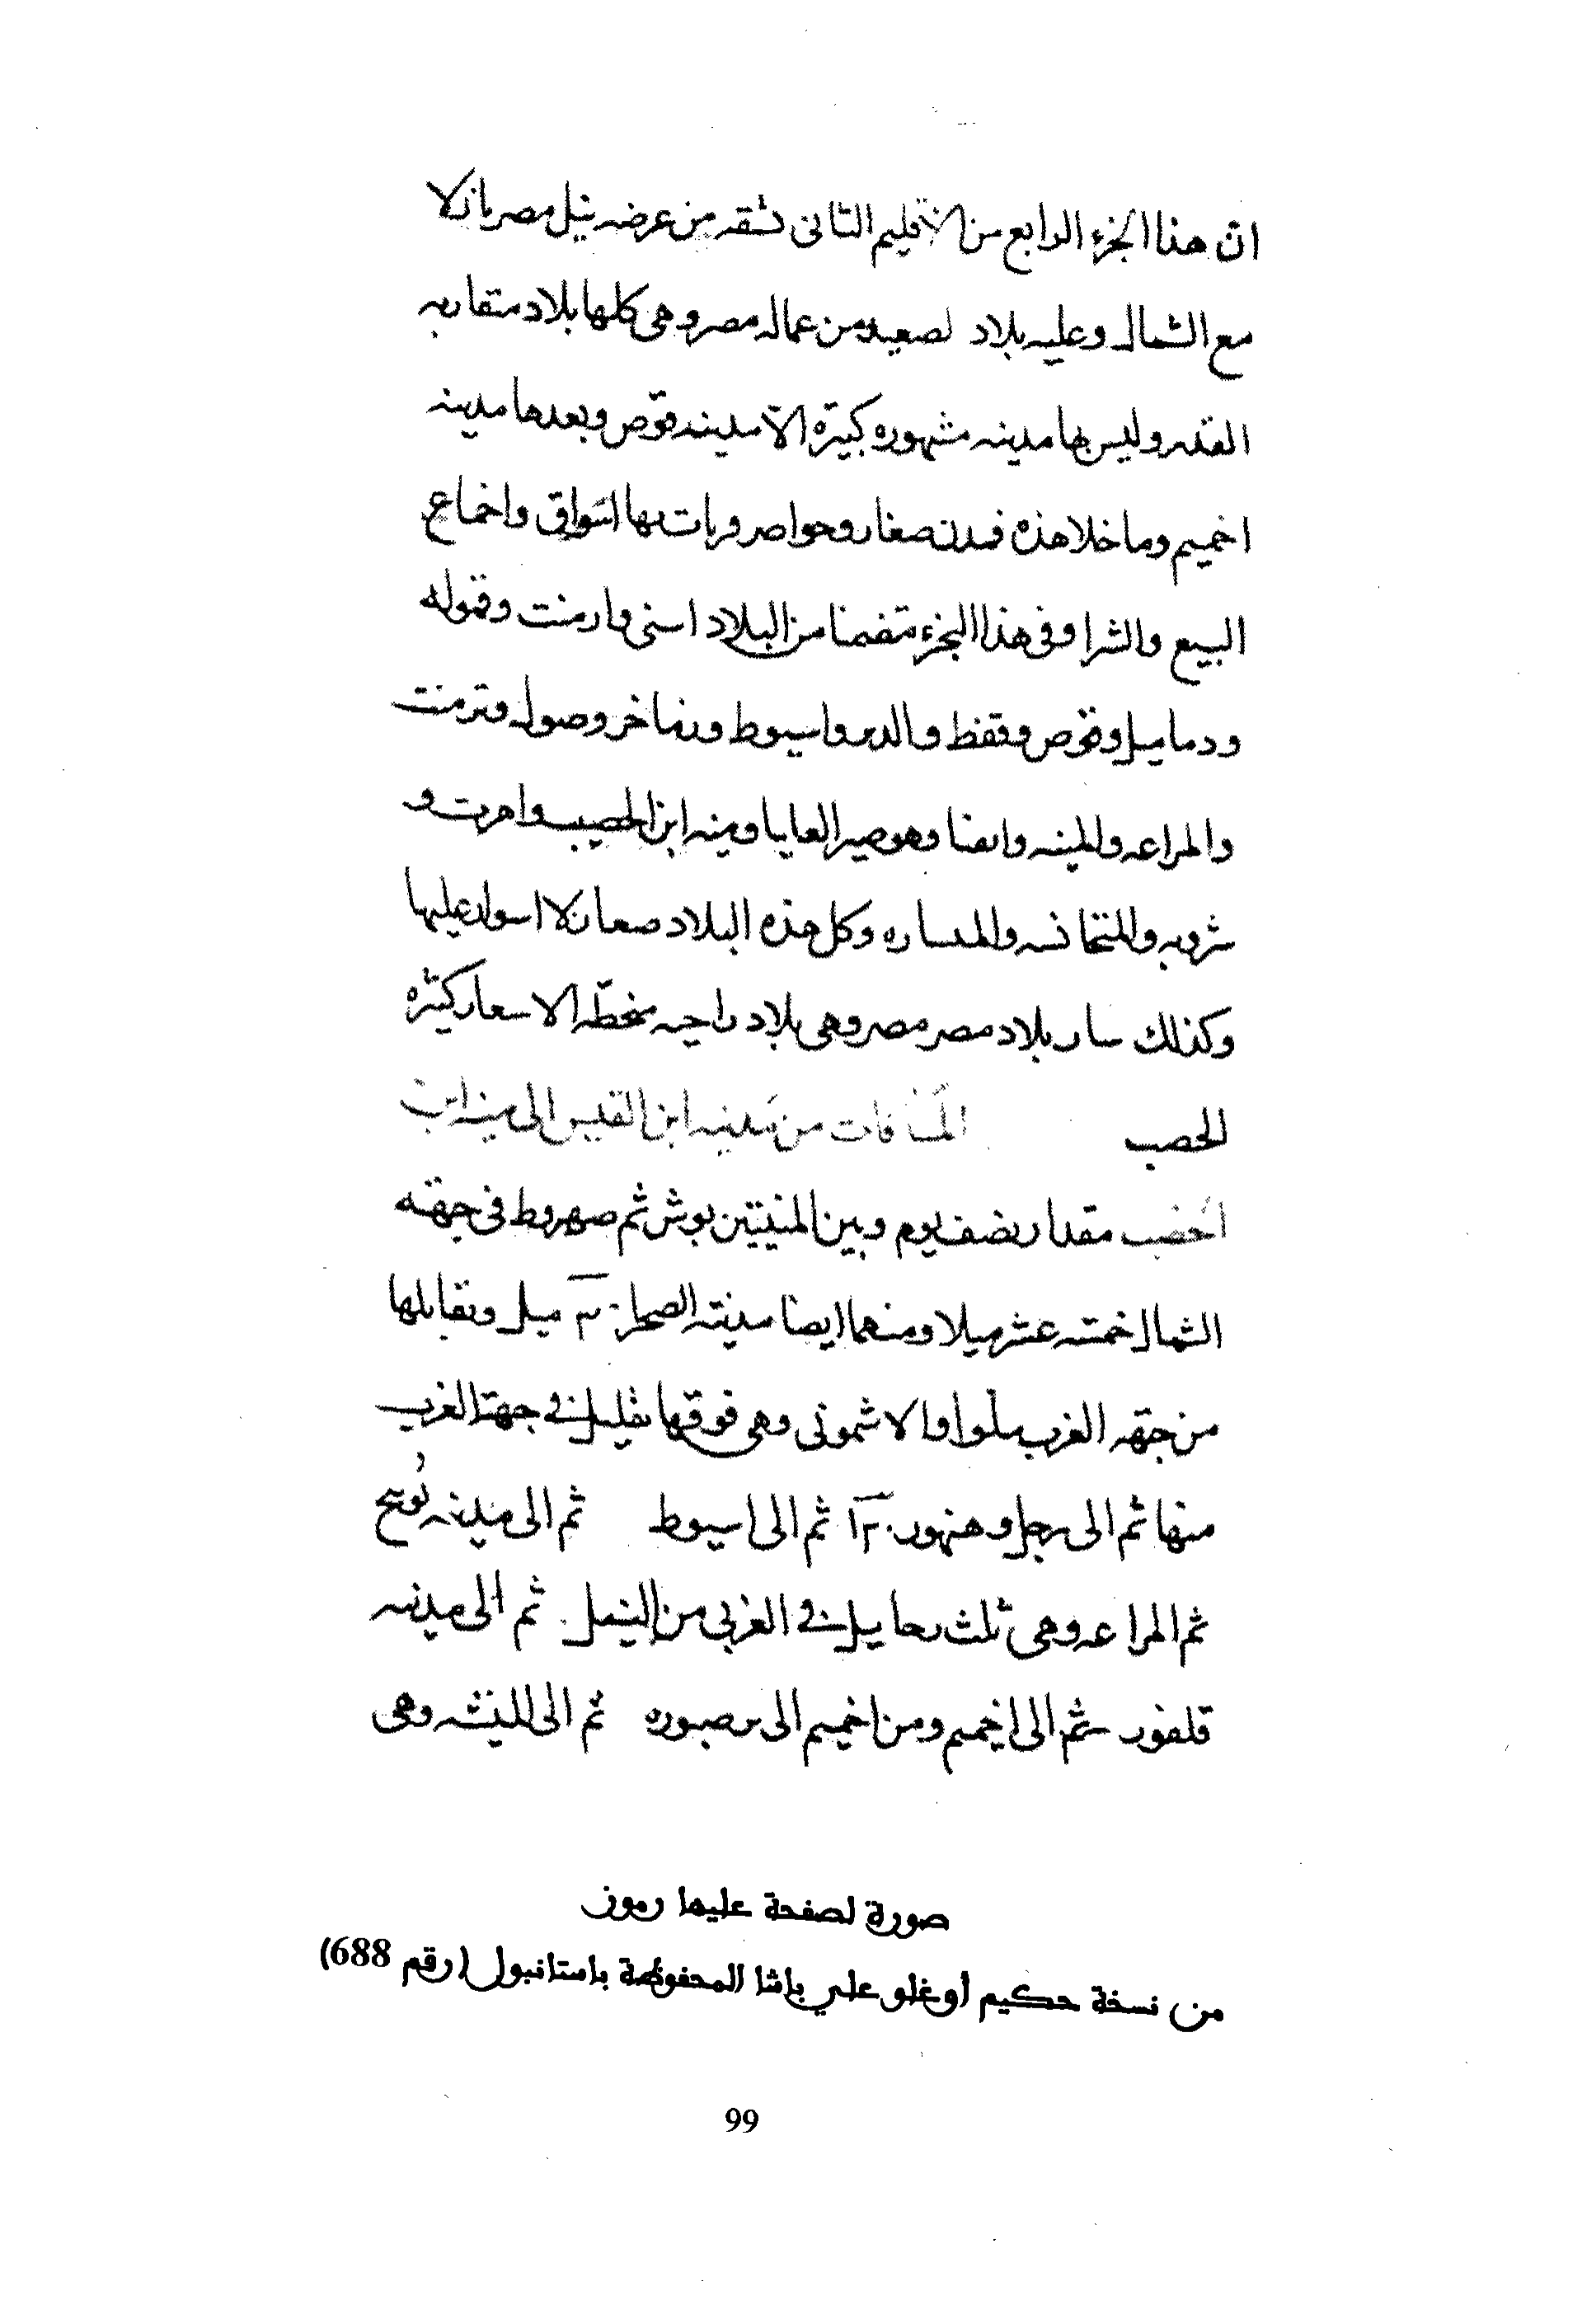 ان هذا الجزء الرابع من الاقليم الثانى تشقه من عرضه نيل مصر نازلا
مع الشمال وعليه بلاد لصعيد ومن عماله مصر وهى كلها بلاد متقاربه
القدر وليس بها مدينه مشهوره كبيرة الا مدينه قوص وبعدها مدينه
اخميم وما خلا هذه فمدن صغار وحواصر وقريات بها اسواق واجماع
البيع والشرا وفى هذا الجزء متضمنا من البلاد اسنى وارمنت وقموله
ودماميل وقوص وقفط والدير واسيوط وزماخر وصول وتزمنت
والمراعه والمينه وانصنا وهو الغايا ومنيه ابن الخصيب واهريت و
شرونه والمنتحانسه وكل هذه البلاد صغار لا اسوار عليها
وكذلك ساير بلاد مصر مصر وهى بلاد منحطة الاسعار كثيره
الخصب المسافات من مدينه ابن القيس الى مينه ابن
اخضب مقدار نصف يوم وبين المنيتين بوش ثم صهروط فى جهته
الشمال خمسه عشر ميلا ومنهما ايضا مدينته ميل ويقابلها
من جهه الغرب ملوا والاشمونى وهى فوقها بقليل فى جهة الغرب
منها ثم الى ثم الى اسيوط ثم الى مدينه بويج
ثم المراعه وهى ثلث فى الغربى من النيل ثم الى مدينه
ثم الى اخميم ومن اخميم الى ثم الى وهى
صورة لصفحة عليها رموز
من نسخة حكيم أوغلو علي باشا المحفوظة باستانبول (رقم 688)
99